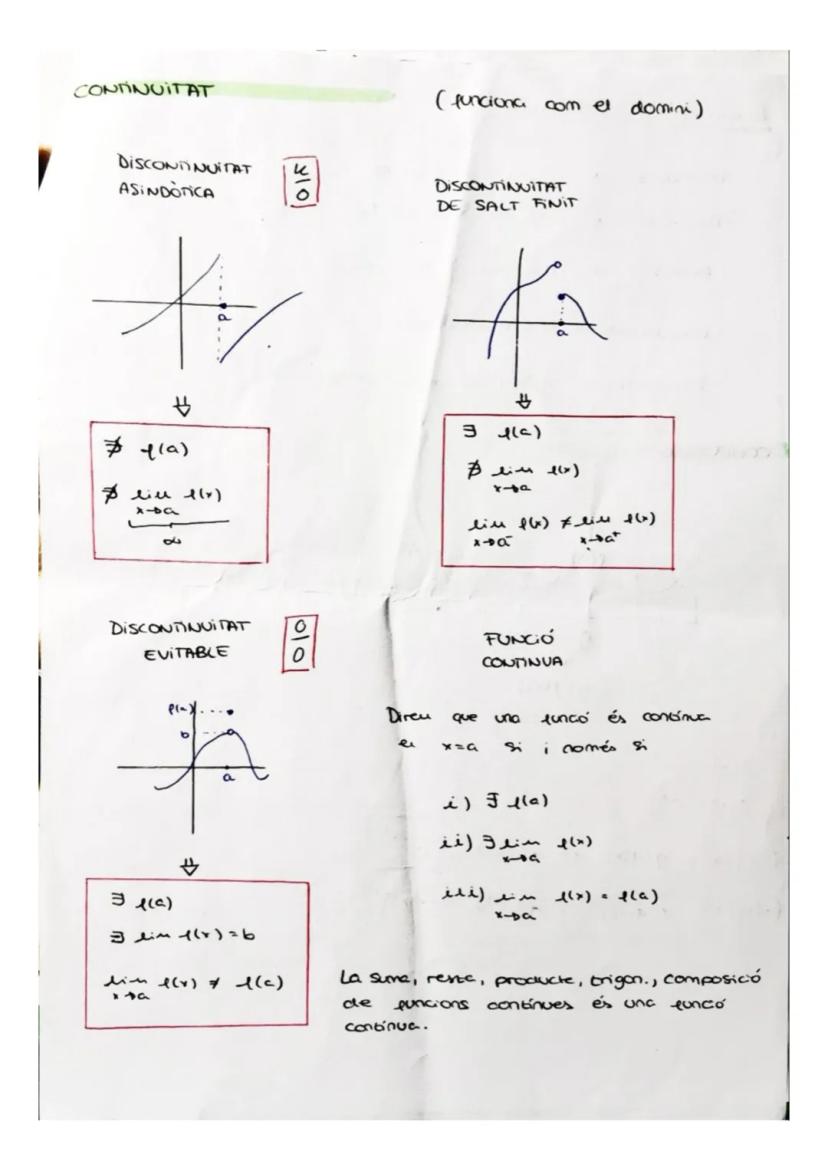 CONTINUITAT
(funciona com el domini)
DISCONTINUITAT
ASINDÒTICA
k/0
a
∄ f(a)
∄ lim f(x)
x→a
∞
DISCONTINUITAT
DE SALT FINIT
a
∃ f(a)
∄ lim f(x)
x→a
lim f(x) ≠ lim f(x)
x→a⁻ x→a⁺
DISCONTINUITAT
EVITABLE
0/0
f(a)
b
a
∃ f(a)
∃ lim f(x) = b
lim f(x) ≠ f(a)
x→a
FUNCIÓ
CONTINUA
Direm que una funció és contínua
en x=a si i només si
i) ∃ f(a)
ii) ∃ lim f(x)
x→a
iii) lim f(x) = f(a)
x→a
La suma, resta, producte, trigon., composició
de funcions contínues és una funció
contínua.